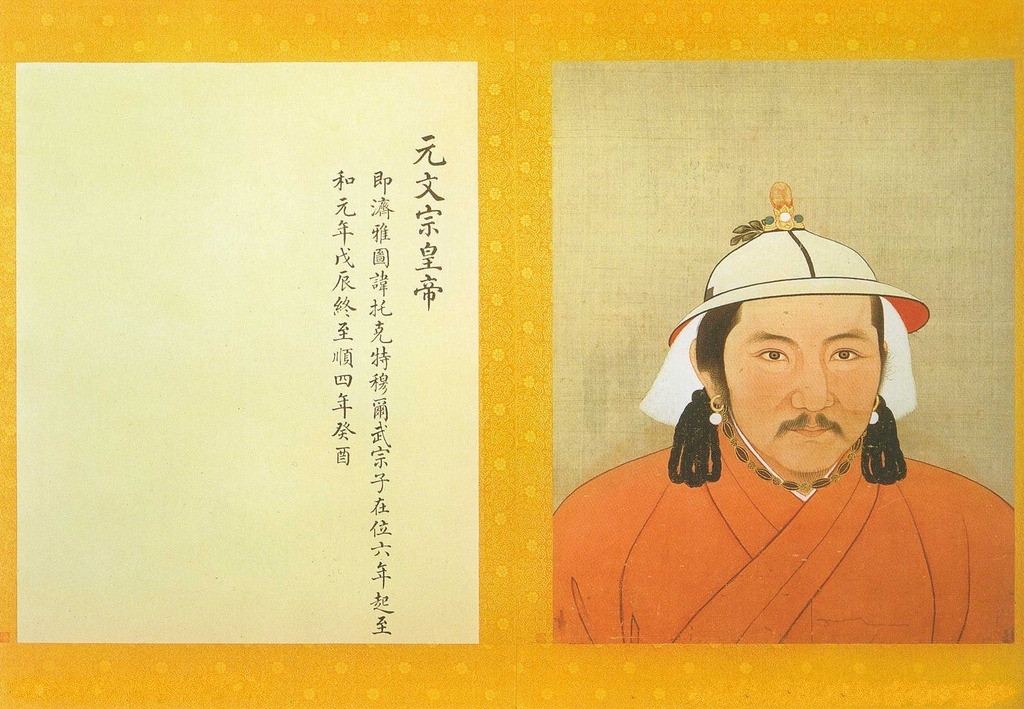 元文宗皇帝
即濟雅圖諱托克特穆爾武宗子在位六年起至
和元年戊辰終至順四年癸酉